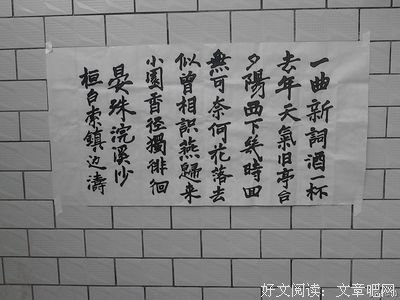 一曲新詞酒一杯
去年天氣旧亭台
夕陽西下幾時回
無可奈何花落去
似曾相識燕歸来
小園香徑獨徘徊
晏珠浣溪沙
桓台索鎮边濤
好文阅读：文章吧网